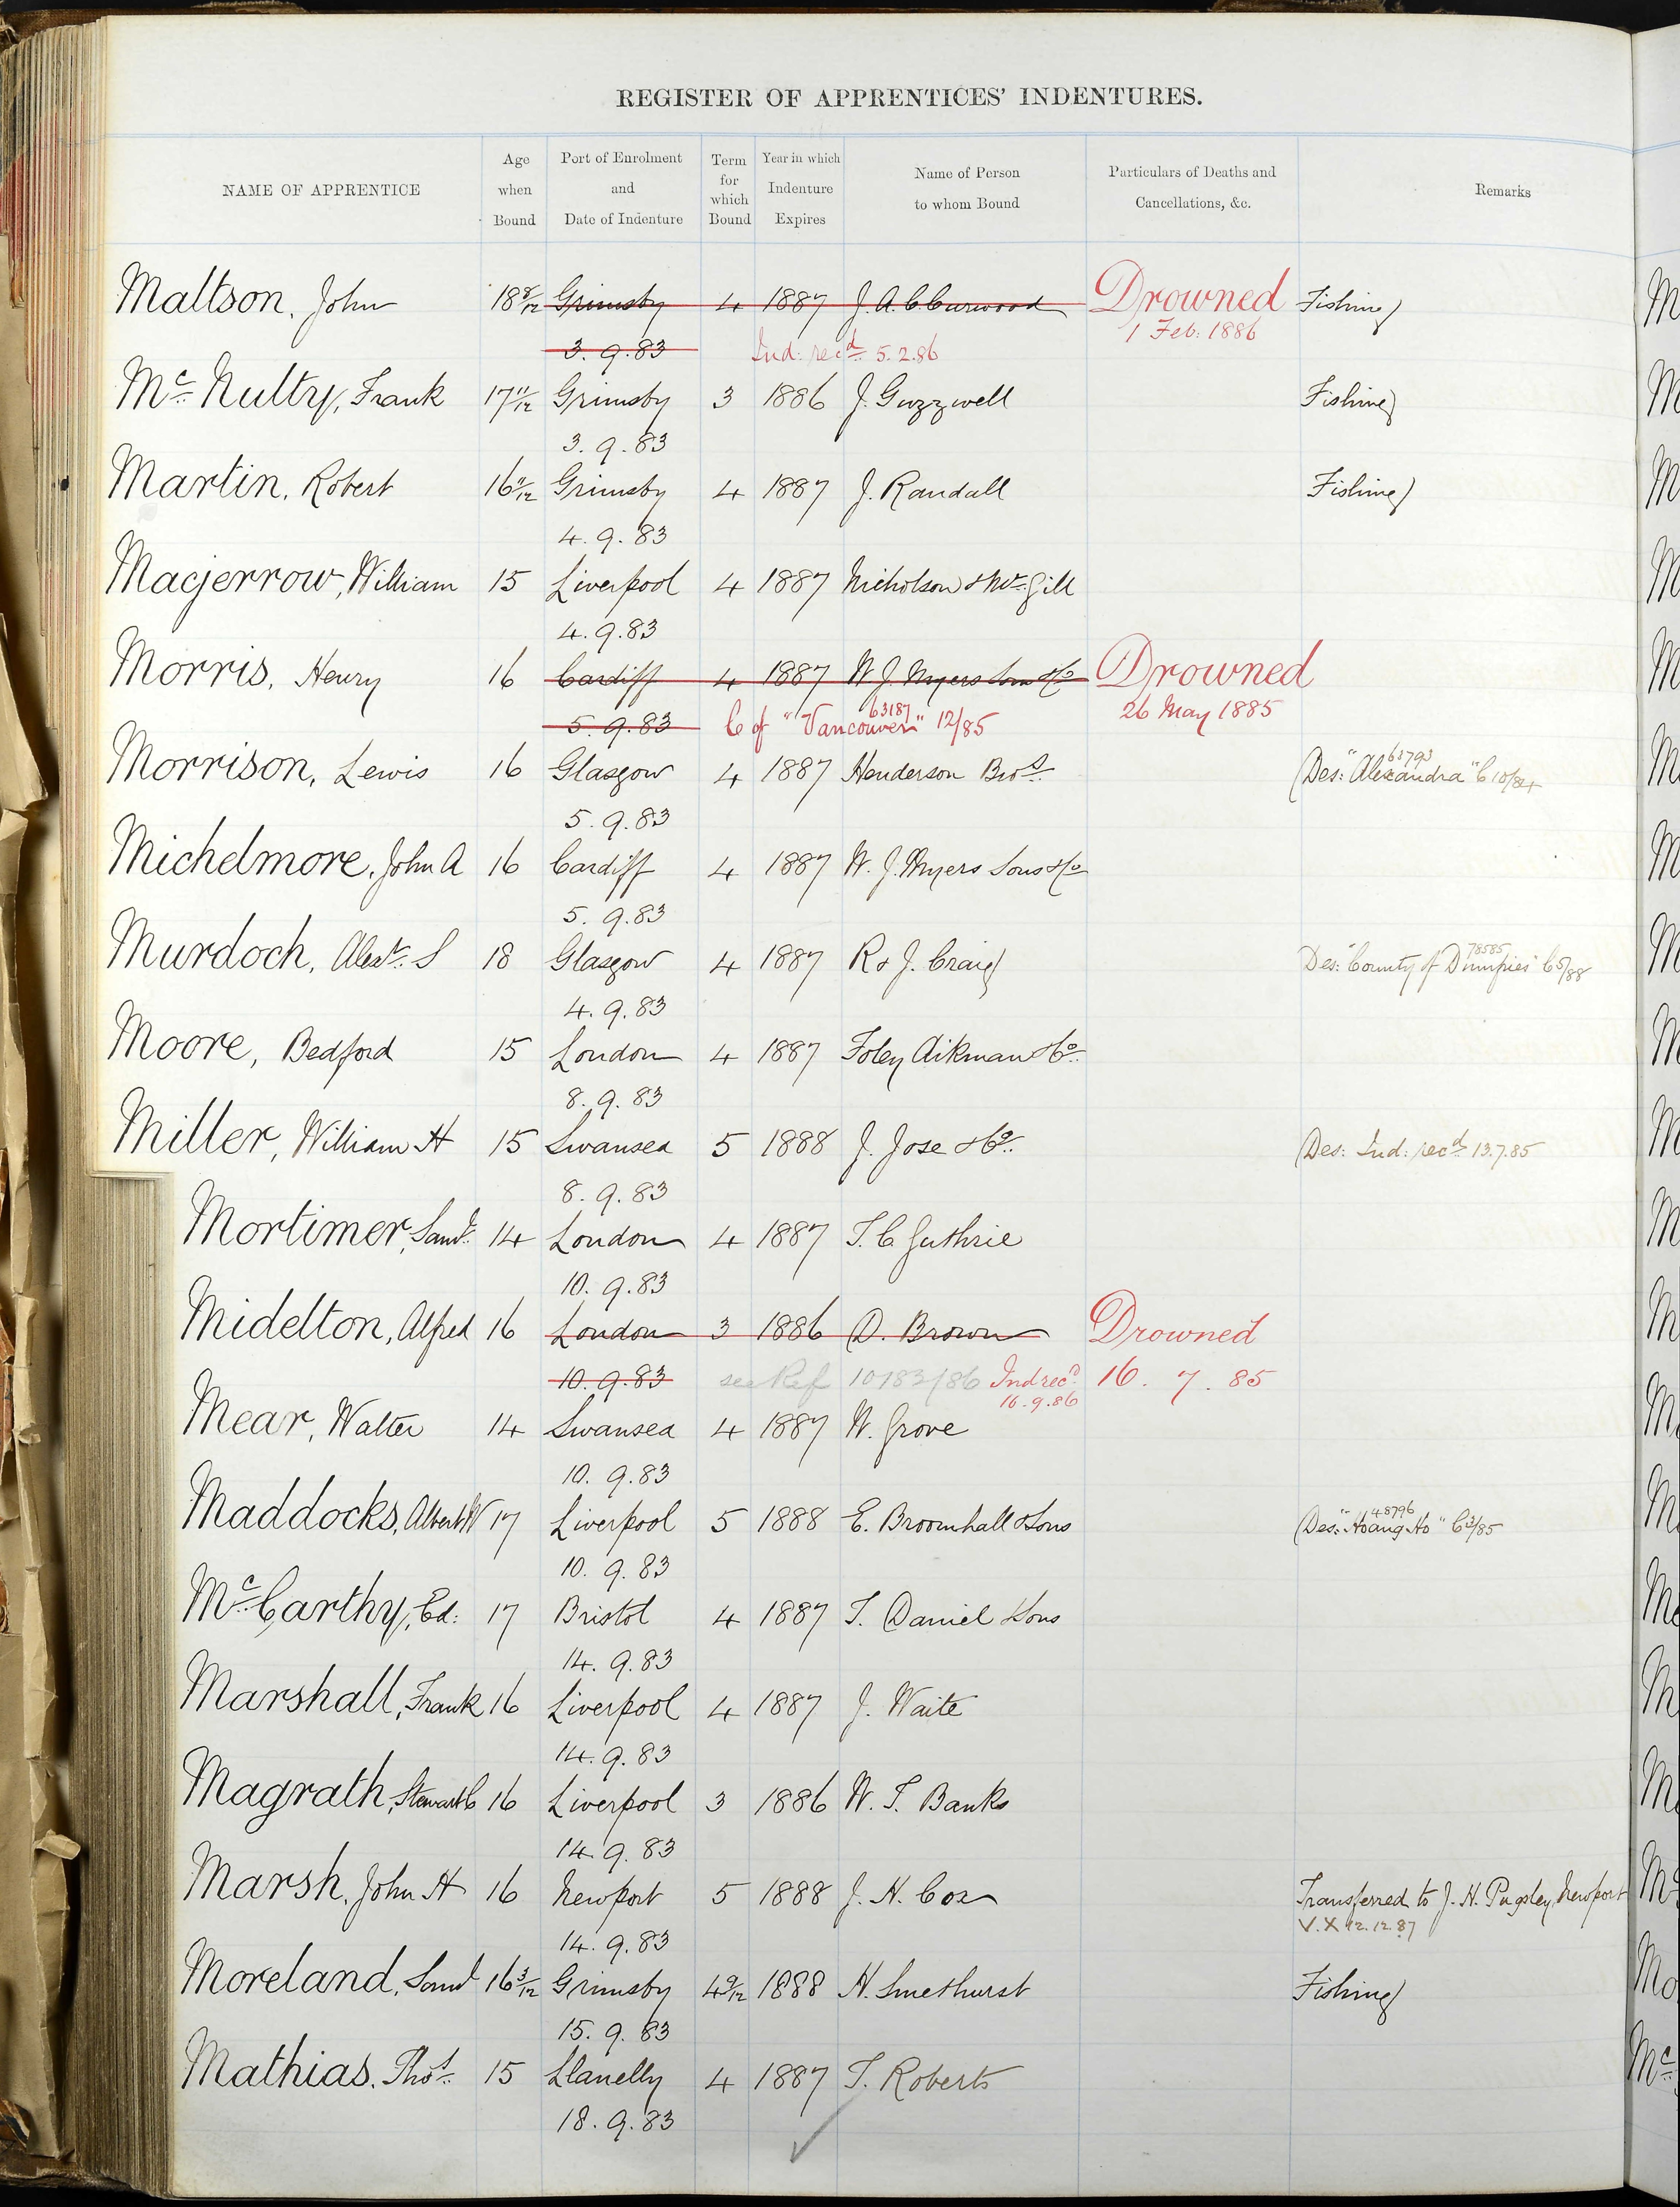 REGISTER OF APPRENTICES' INDENTURES.
NAME OF APPRENTICE Age when Bound Port of Enrolment and Date of Indenture Term for which Bound Year in which Indenture Expires Name of Person to whom Bound Particulars of Deaths and Cancellations, &c. Remarks
Maltson, John 18 8/12 Grimsby 4 1887 J. A. C. Curwood Drowned Fishing
3.9.83 Ind: recd 5.2.86 1 Feb: 1886
Mc Nulty, Frank 17 11/12 Grimsby 3 1886 J. Guzzwell Fishing
3.9.83
Martin, Robert Grimsby 4 1887 J. Randall Fishing
4.9.83
Macjerrow, William 15 Liverpool 4 1887 Nicholson & McGill
4.9.83
Morris, Henry 16 Cardiff 4 1887 W. J. Myers Son & Co Drowned
5.9.83 C of "Vancouver" 63187 12/85 26 May 1885
Morrison, Lewis 16 Glasgow 4 1887 Henderson Bros. Des: "Alexandra" C 10/84
5.9.83
Michelmore, John A 16 Cardiff 4 1887 W. J. Myers Sons & Co
5.9.83
Murdoch, Alexr. S 18 Glasgow 4 1887 R & J. Craig Des: "County of Dumfries" 78585 C 5/88
4.9.83
Moore, Bedford 15 London 4 1887 Foley Aikman & Co.
8.9.83
Miller, William H 15 Swansea 5 1888 J. Jose & Co. Des: Ind: recd 13.7.85
8.9.83
Mortimer, Saml. 14 London 4 1887 T. C. Guthrie
10.9.83
Midelton, Alfred 16 London 3 1886 D. Brown Drowned
10.9.83 see Ref 10783/86 Ind recd. 16.9.86 16.7.85
Mear, Walter 14 Swansea 4 1887 W. Grove
10.9.83
Maddocks, Albert W 17 Liverpool 5 1888 E. Broomhall & Sons Des: "Hoang Ho" 48796 C 3/85
10.9.83
Mc Carthy, Ed: 17 Bristol 4 1887 T. Daniel & Sons
14.9.83
Marshall, Frank 16 Liverpool 4 1887 J. Waite
14.9.83
Magrath, Stewart C 16 Liverpool 3 1886 W. T. Banks
14.9.83
Marsh, John H 16 Newport 5 1888 J. H. Cox Transferred to J. H. Pugsley, Newport
14.9.83 V.X 12.12.87
Moreland, Saml 16 3/12 Grimsby 4 9/12 1888 H. Smethurst Fishing
15.9.83
Mathias, Thos. 15 Llanelly 4 1887 T. Roberts
18.9.83